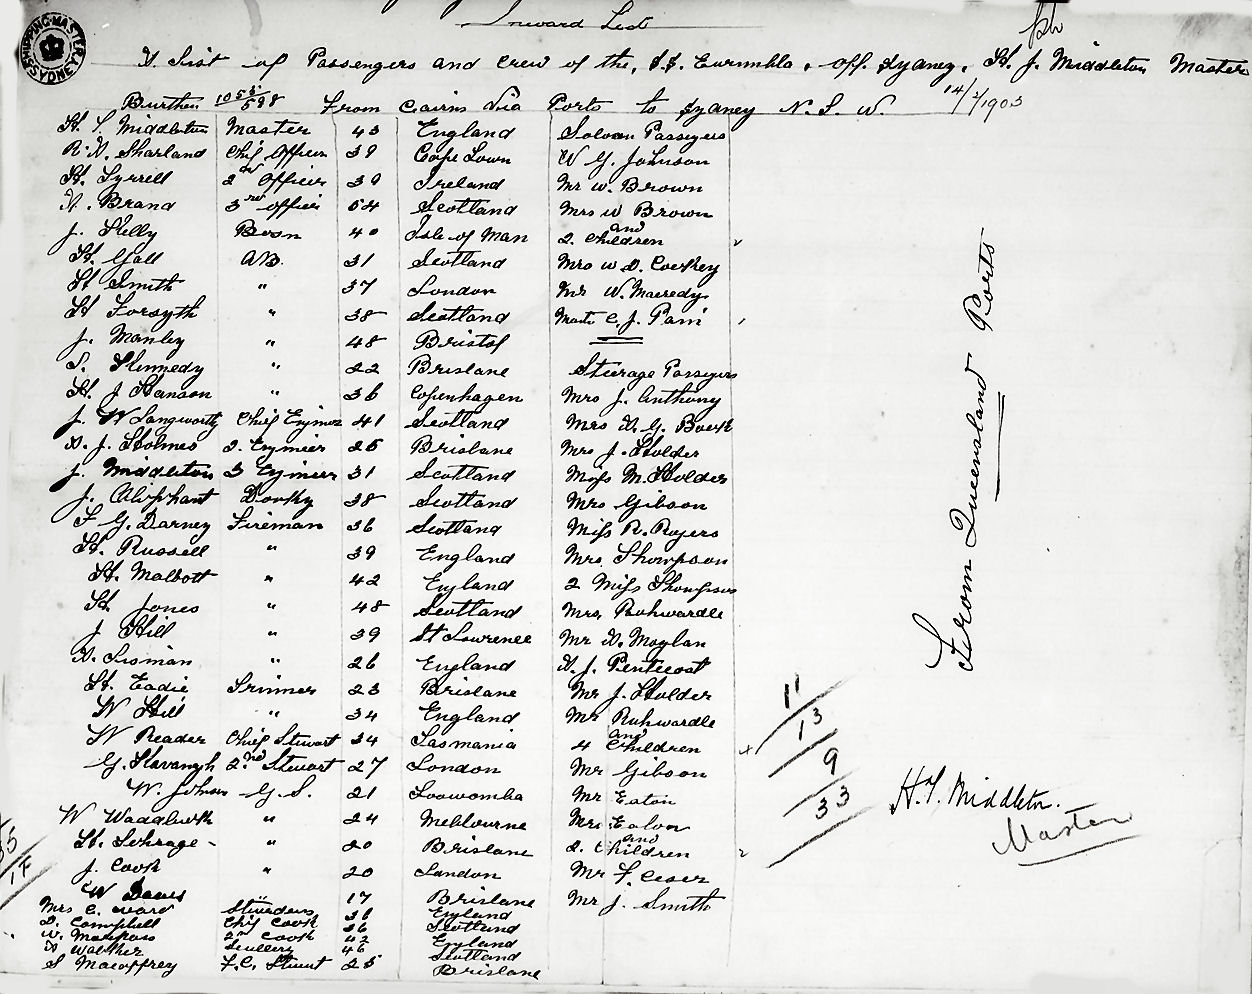 Inward List
A List of Passengers and Crew of the, S.S. Eurimbla, off Sydney, H. J. Middleton Master
Burthen 1055/598 From Cairns Via Ports to Sydney N. S. W. 14/2/1903
SHIPPING MASTER SYDNEY
H. T. Middleton Master 43 England Saloon Passengers
R. A. Sharland Chif Officer 39 Cape Town W G. Johnson
H. Tyrrell 2nd Officer 39 Ireland Mr W. Brown
A. Brand 3rd officer 54 Scotland Mrs W Brown
J. Kelly Bosn 40 Isle of Man and 2. Children
H. Gall A.B. 31 Scotland Mrs W D.
H Smith " 37 London Mr W. Macredy
H Forsyth " 38 Scotland C. J.
J. Manley " 48 Bristol
S. Kennedy " 22 Brisbane Steerage Passengers
H. J Hanson " 36 Copenhagen Mrs J. Anthony
J. W Langworthy Chief Engineer 41 Scotland Mrs A. G.
A. J. Holmes 2. Engineer 25 Brisbane Mrs J. Holder
J. Middleton 3 Engineer 31 Scotland Miss M. Holder
J. Oliphant Donky 38 Scotland Mrs Gibson
F G. Darney Fireman 36 Scotland Miss R. Rogers
H. Russell " 39 England Mrs, Thompson
H. Malbott " 42 England 2 Miss Thompson
H Jones " 48 Scotland Mrs, Ruhwardle
J Hill " 39 St Lawrence Mr A. Moylan
A. Sisman " 26 England A. J. Pentecost
H. Eadie Trimmer 23 Brisbane Mr J. Holder
W Hill " 34 England Mr Ruhwardle
W Reader Chief Stewart 34 Tasmania and 4 Children
G. Kavanagh 2nd Stewart 27 London Mr Gibson
W. Johnson G. S. 21 Toowomba Mr Eaton
W " 24 Melbourne Mrs Eaton
H. Schrage " 20 Brisbane and 2. Children
J. Cook " 20 London Mr F.
W Davis " 17 Brisbane Mr J. Smith
Mrs C. Ward 31 England
D. Campbell Chif Cook 36 Scotland
W. 2nd Cook 42 England
A Walther Scullery 46 Scotland
S Macaffrey F.C. Stewart 25 Brisbane
35
17
11
13
9
33
From Queensland Ports
H. T. Middleton.
Master